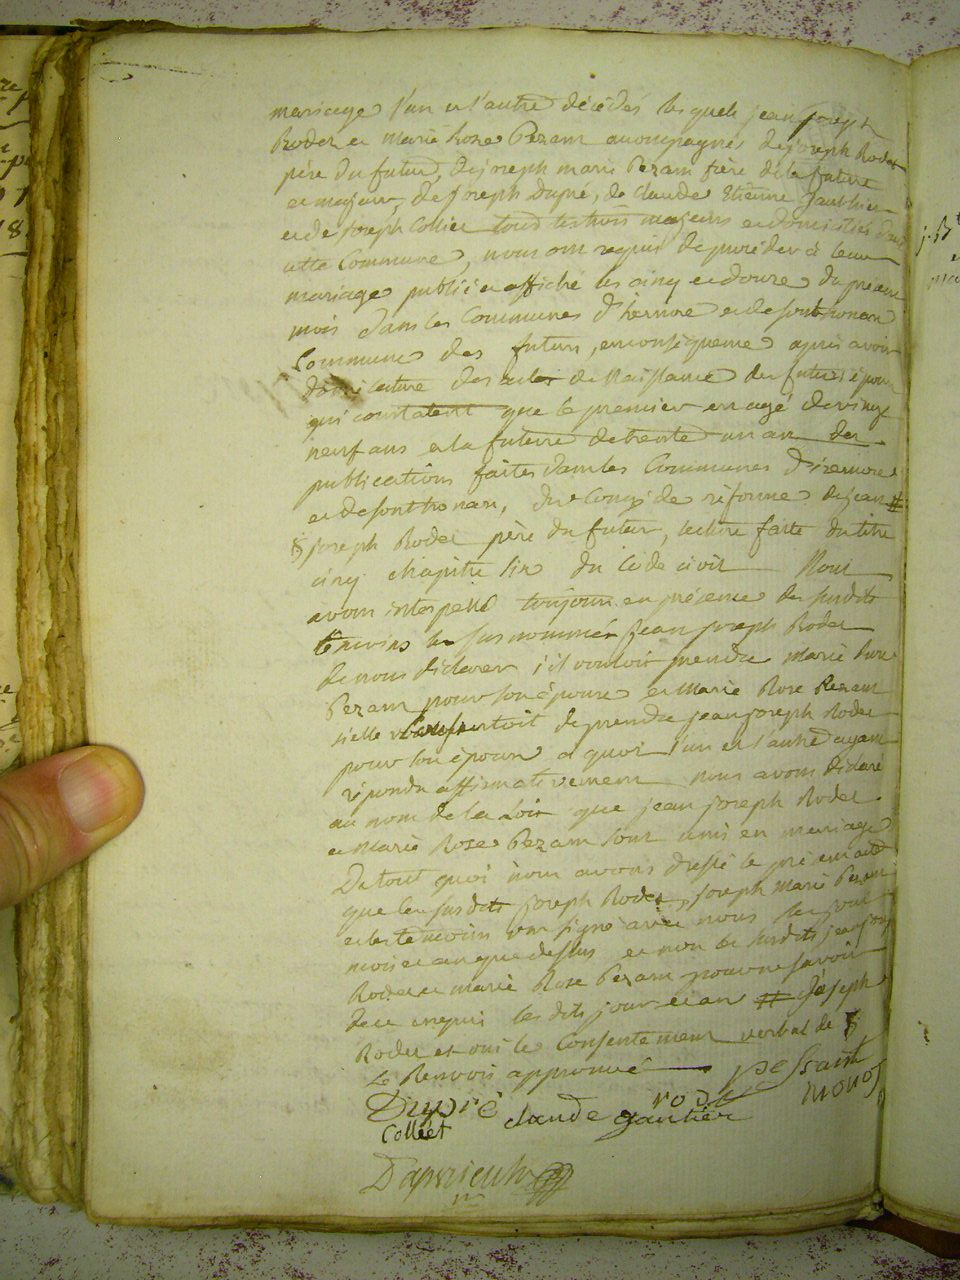 mariage l'un et l'autre décédés lesquels jean joseph
Rodet et marie Rose Pezant accompagné de joseph Rodet
père du futur, de joseph marie Pezant frère de la future
et majeur, de joseph Dupré, de Claude Etienne Gauthier
et de joseph Colliet tous les trois majeurs et domiciliés dans
cette Commune, nous ont requis de procéder à leur
mariage publié et affiché les cinq et douze du présent
mois dans les Communes d'hernore et de sonthonan
Communes des futurs, en conséquence après avoir
lecture des actes de Naissance des futurs époux
qui constatent que le premier est agé de vingt
neuf ans et la future de trente un an des
publications faites dans les Communes d'
et de sonthonan, du Congé de réforme de jean #
§ joseph Rodet père du futur, lecture faite du titre
cinq chapitre six du Code civil Nous
avons interpellé toujours en présence des susdits
témoins les susnommés jean joseph Rodet
de nous déclarer s'il vouloit prendre marie Rose
Pezant pour son épouse et marie Rose Pezant
si elle Consentoit de prendre jean joseph Rodet
pour son époux a quoi l'un et l'autre ayant
répondu affirmativement nous avons déclaré
au nom de la Loi que jean joseph Rodet
et Marie Rose Pezant sont unis en mariage
De tout quoi nous avons dressé le présent acte
que les susdits joseph Rodet, joseph Marie Pezant
et les témoins ont signé avec nous les jour
mois et an que dessus et non les susdits jean joseph
Rodet et marie Rose Pezant pour ne savoir
de ce enquis les dits jour et an # joseph
Rodet et oui le Consentement verbal de §
Le Renvois approuvé
Dupré rodet
Colliet claude gautier